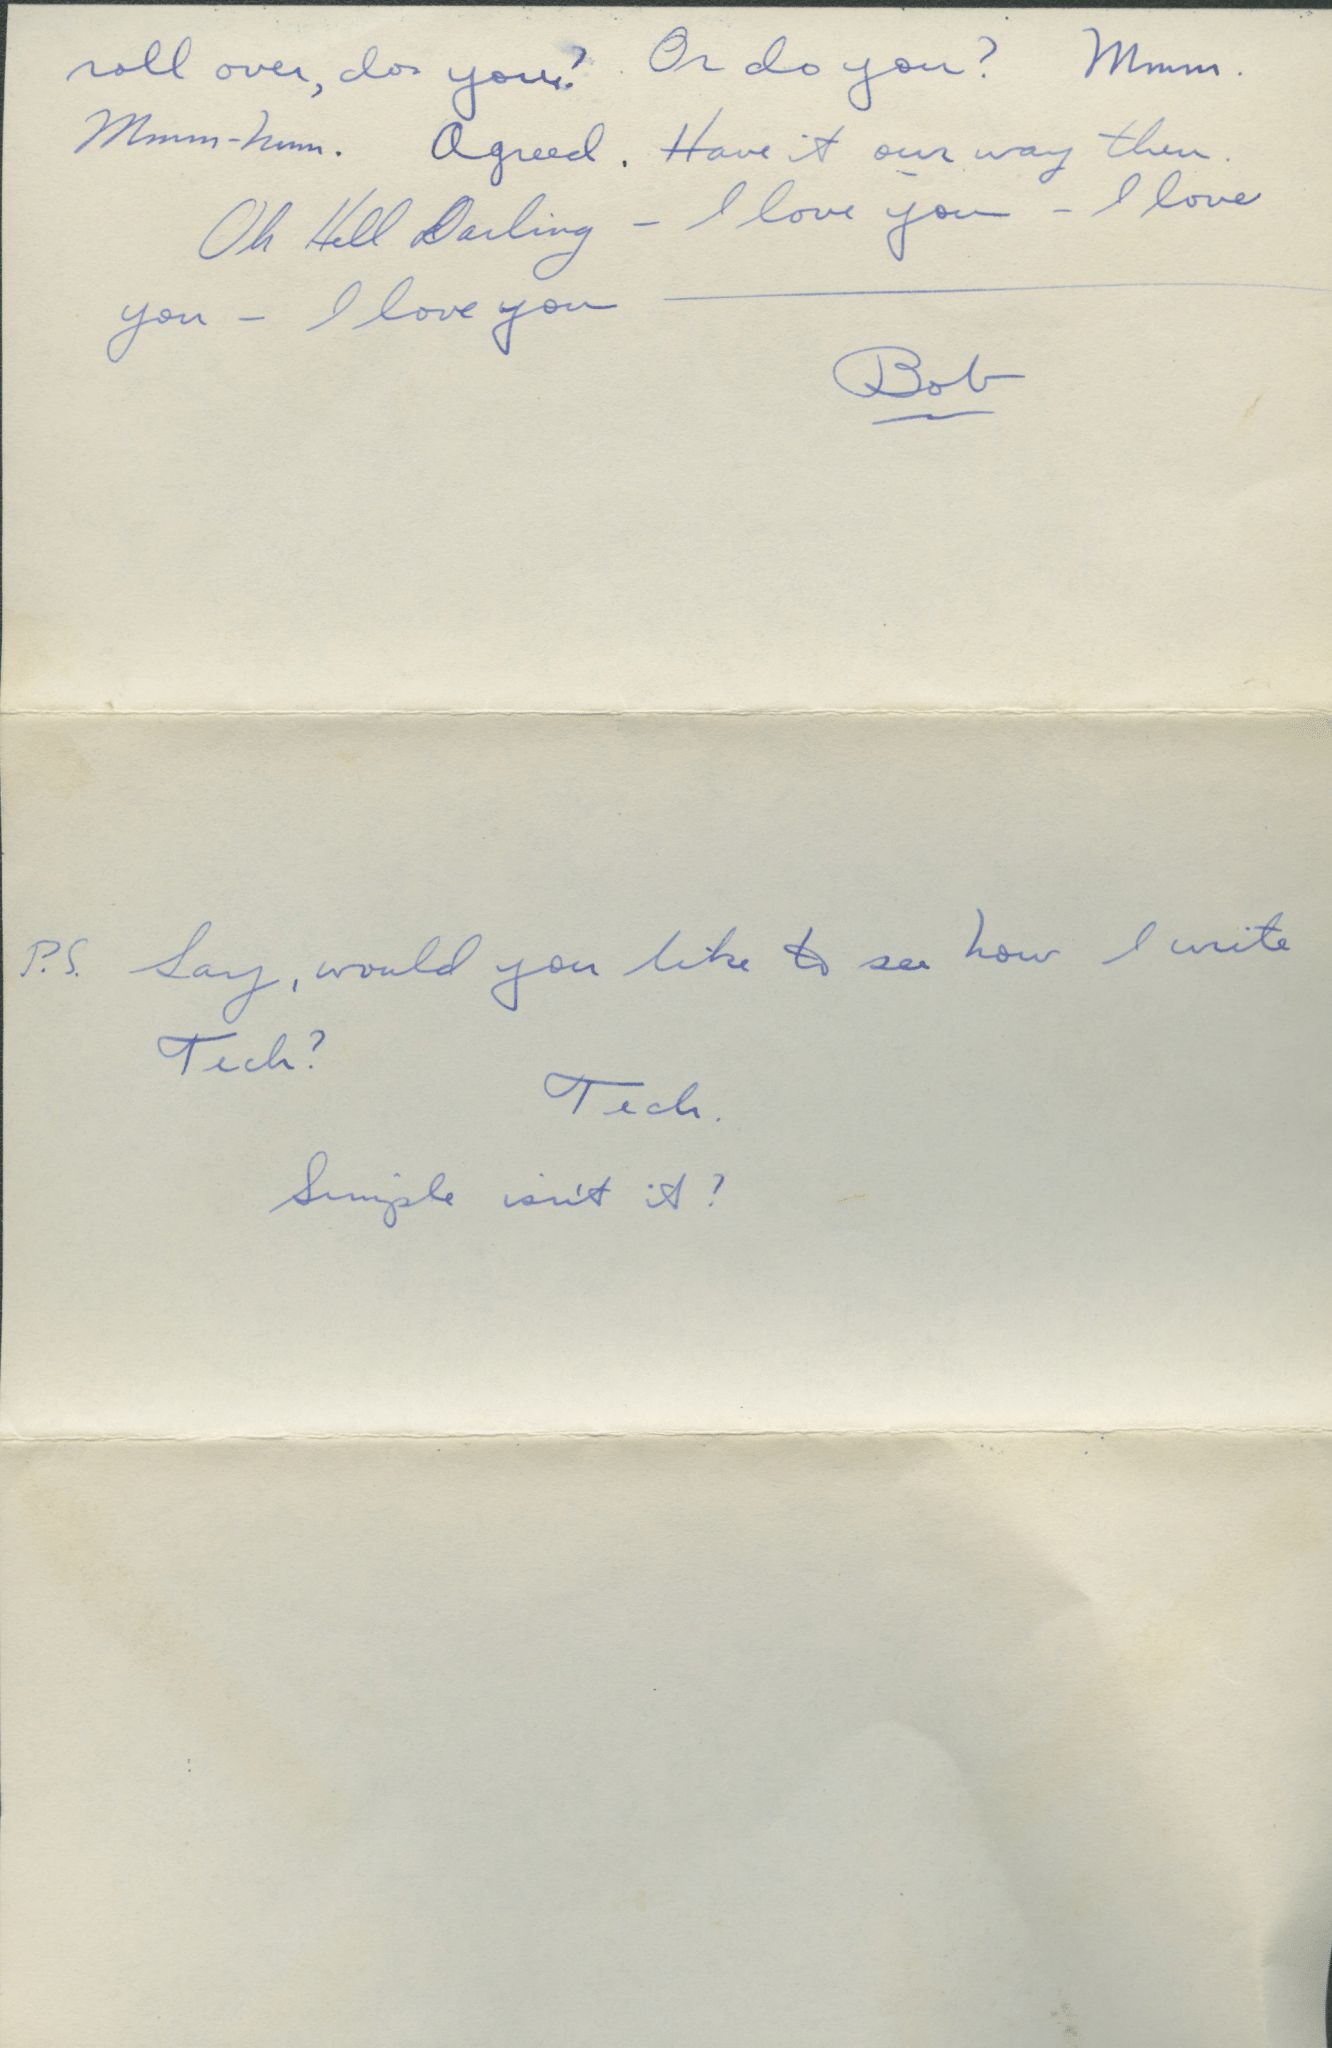 roll over, do you? Or do you? Mmmm.
Mmmm-hmm. Agreed. Have it our way then.
Oh Hell Darling - I love you - I love
you - I love you
Bob
P.S. Say, would you like to see how I write
Tech?
Tech.
Simple isn't it?